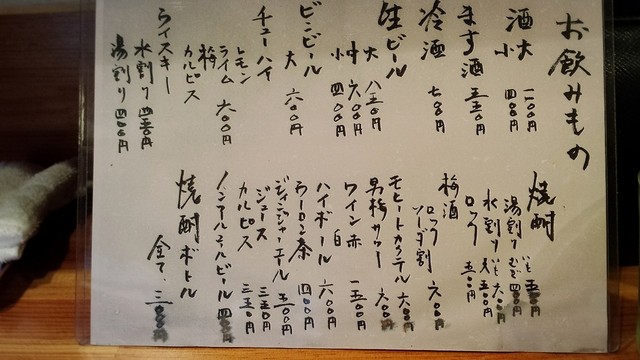 お飲みもの
酒 大 一一〇〇円
小 四〇〇円
ます酒 五五〇円
冷酒 七〇〇円
生ビール 大 八五〇円
中 六〇〇円
小 四〇〇円
ビンビール 大 六〇〇円
チューハイ
レモン
ライム 六〇〇円
梅
カルピス
ウイスキー
水割り 四五〇円
湯割り 四〇〇円
焼酎
湯割り
水割り
ロック 五〇〇円
梅酒
ロック
ソーダ割 六〇〇円
モヒートカクテル 六〇〇円
男梅サワー 六〇〇円
ワイン 赤 一五〇〇円
白
ハイボール 六〇〇円
ウーロン茶 四〇〇円
ジンジャーエール 五〇〇円
ジュース 三五〇円
カルピス 三五〇円
ノンアルコールビール 四〇〇円
焼酎ボトル
全て